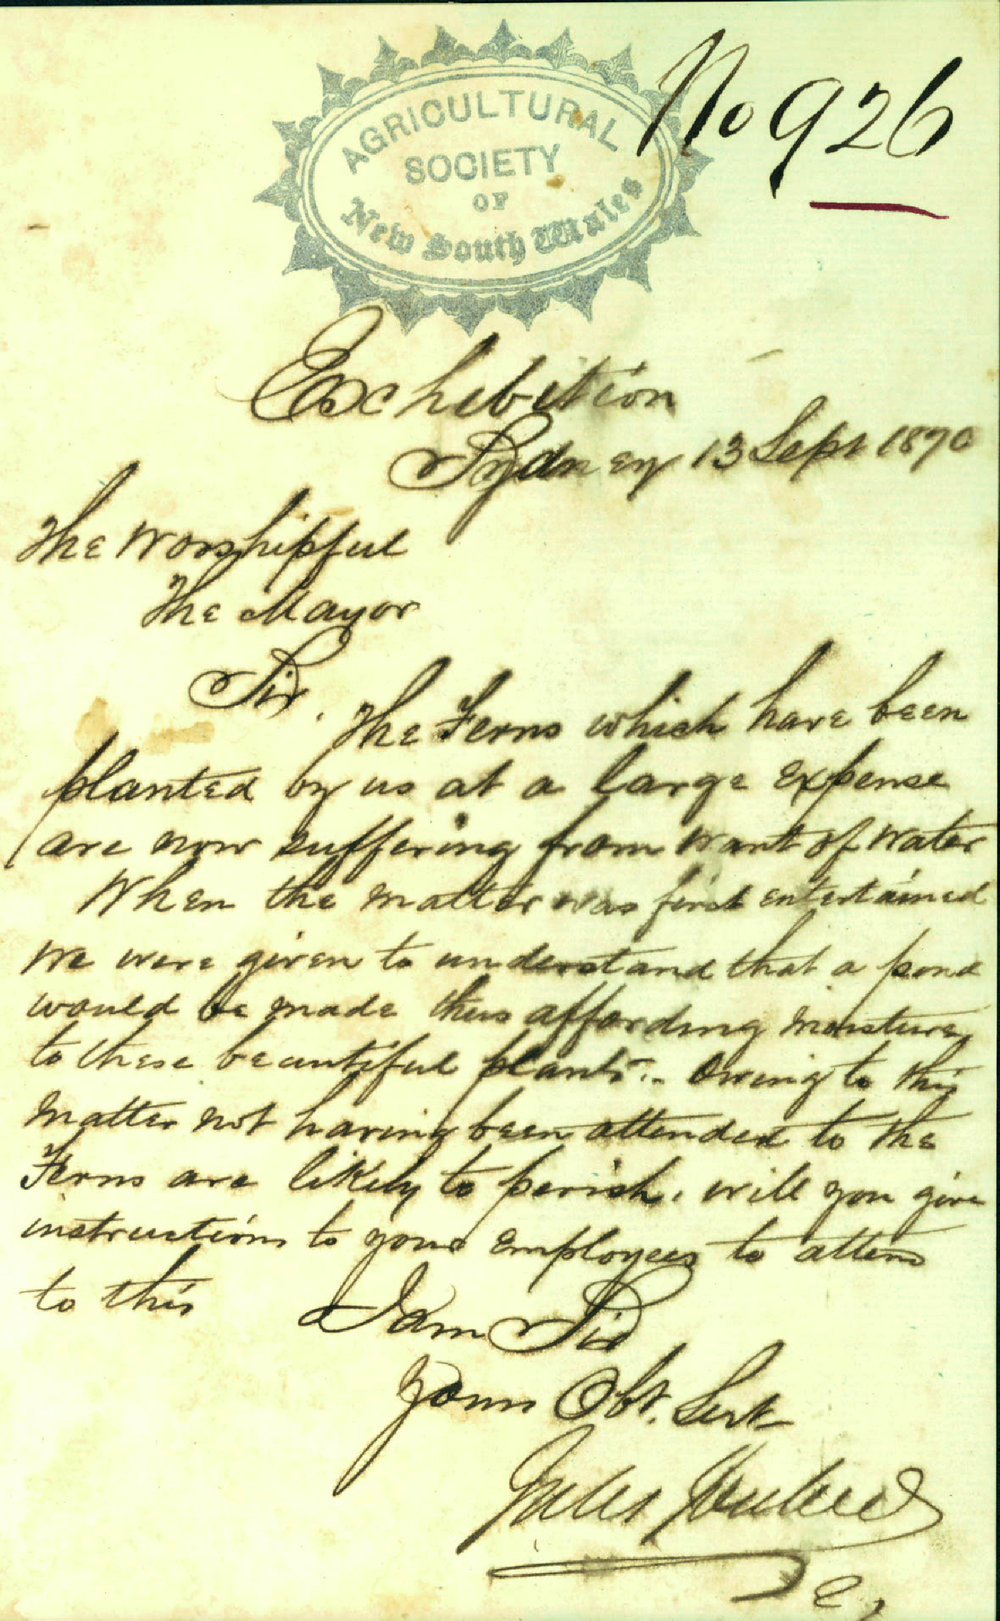 No 926
AGRICULTURAL
SOCIETY
OF
New South Wales
Exhibition
Sydney 13 Sept 1870
The Worshipful
The Mayor
Sir.
The Ferns which have been
planted by us at a large expense
are now suffering from want of water
When the matter was first entertained
we were given to understand that a pond
would be made thus affording moisture
to these beautiful plants.. Owing to this
matter not having been attended to the
Ferns are likely to perish. will you give
instructions to your employees to attend
to this
I am Sir
Your Obt. Servt
Jules Joubert